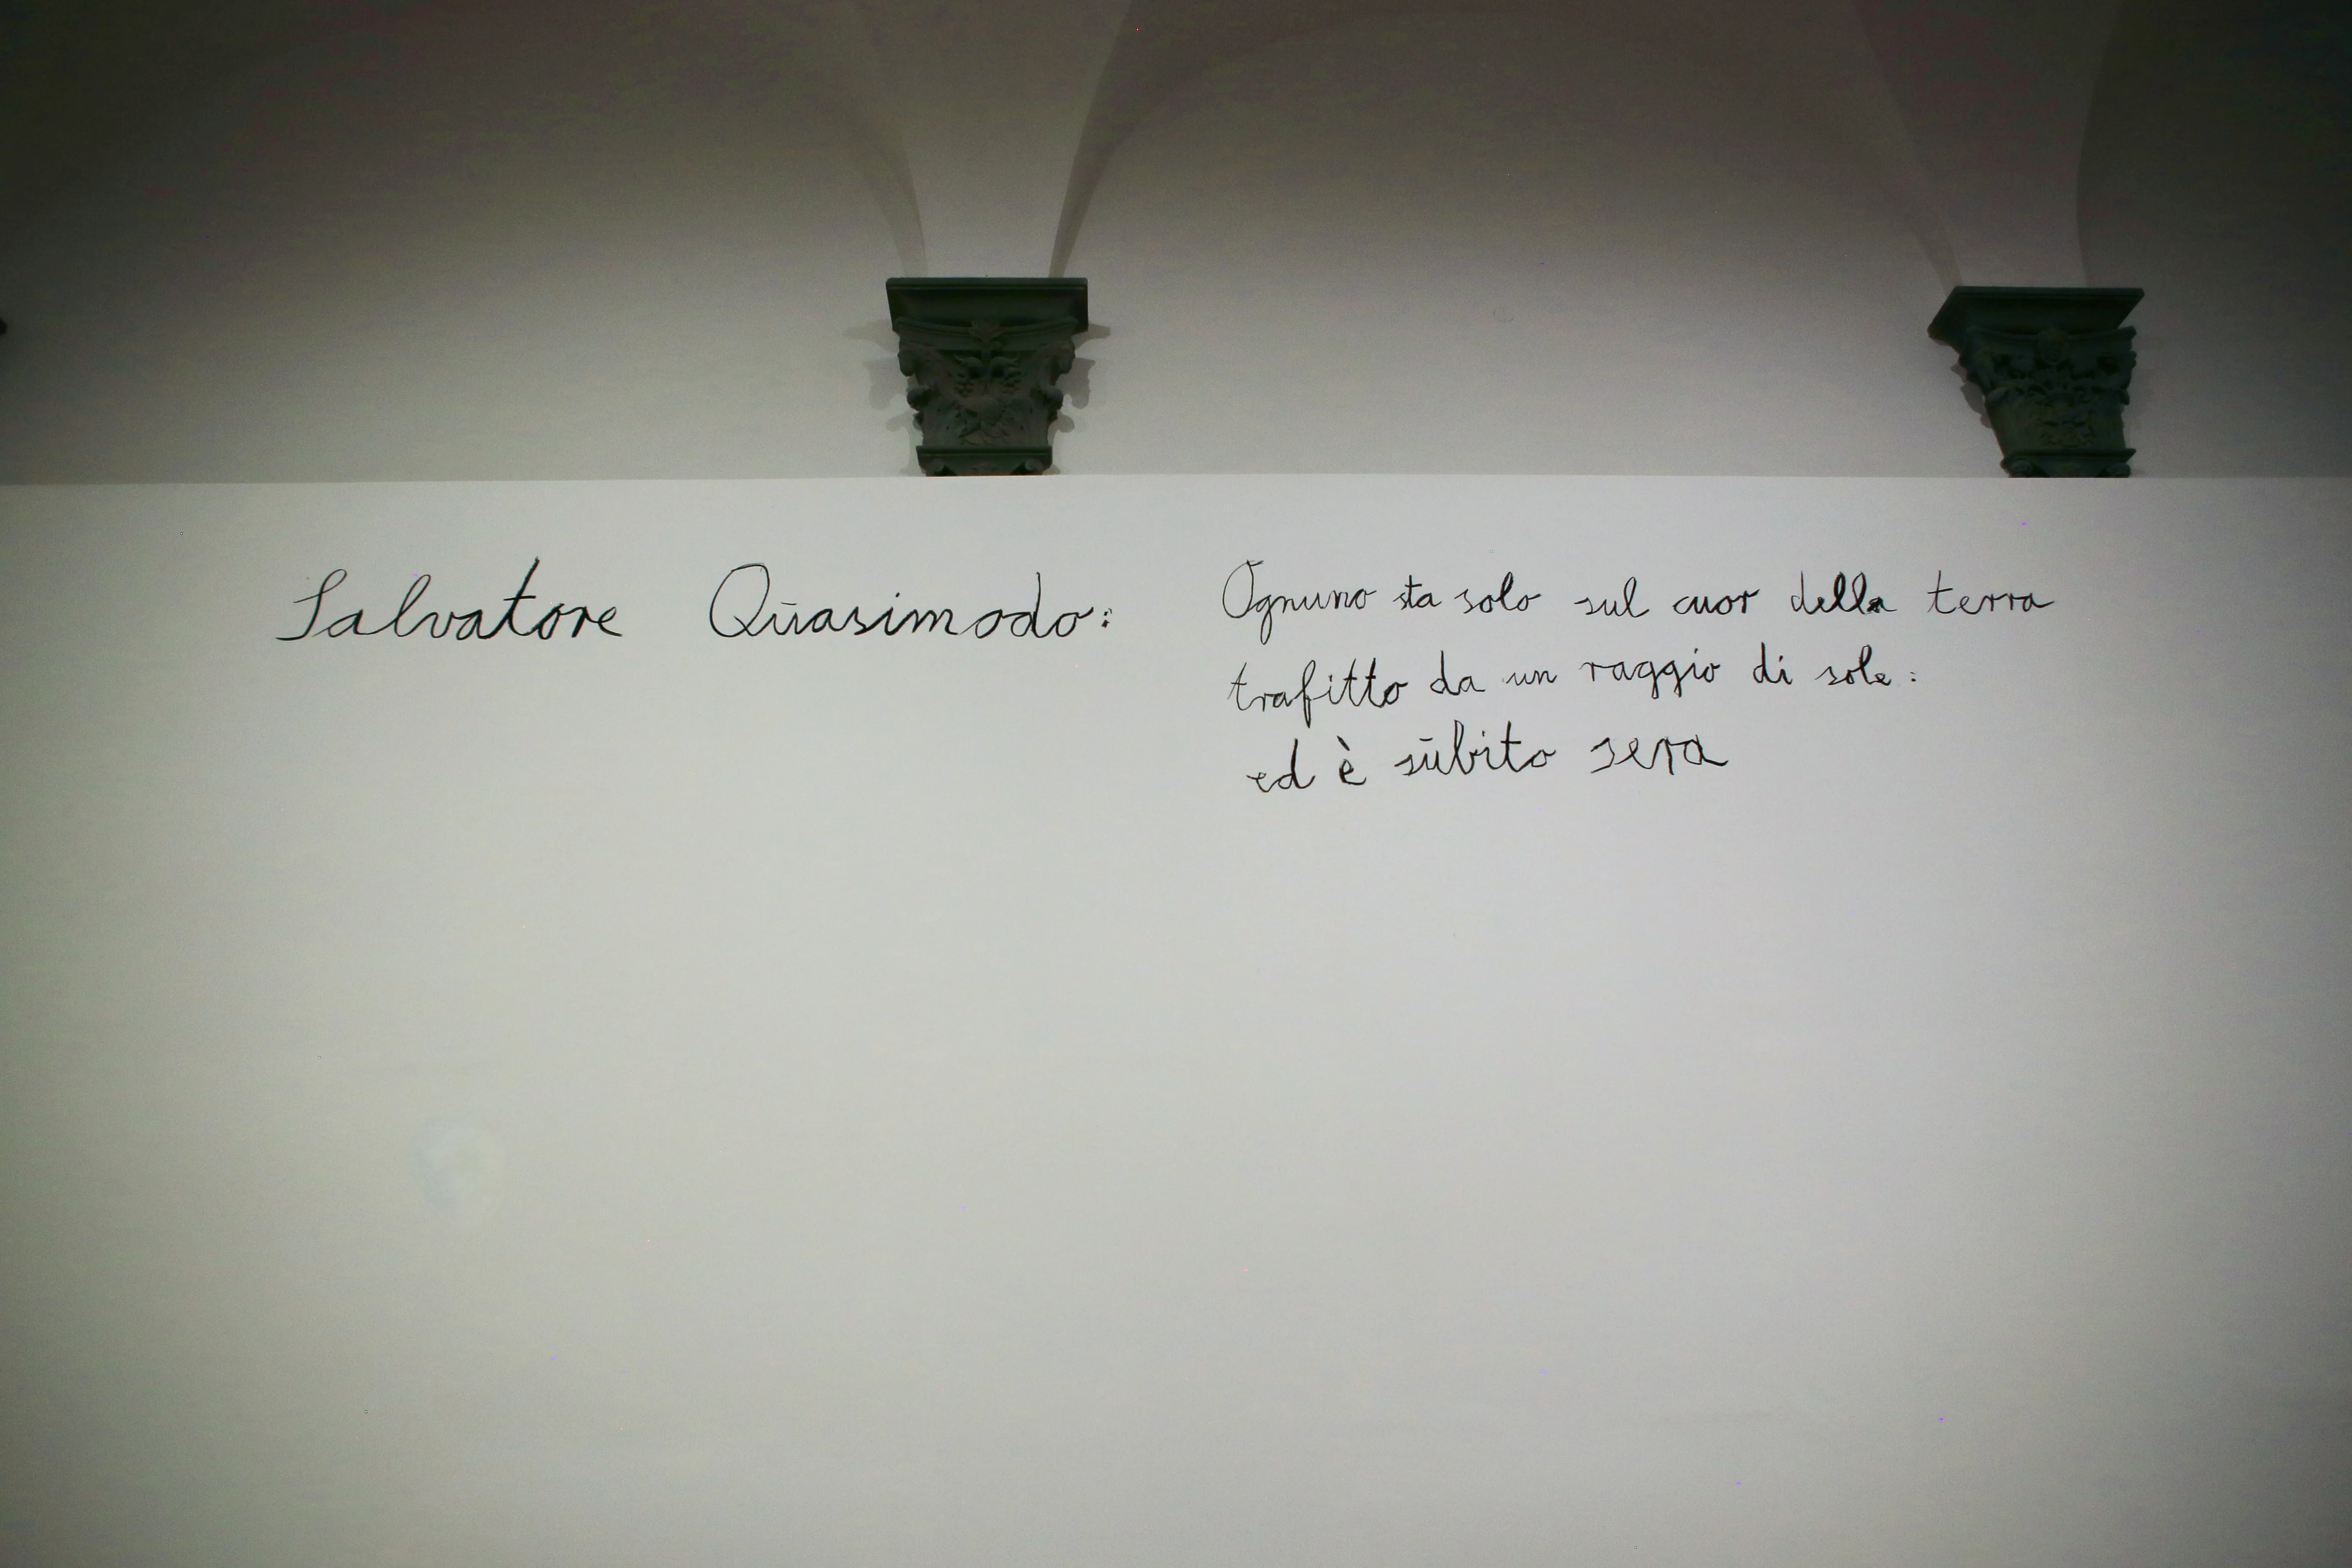 Salvatore Quasimodo:
Ognuno sta solo sul cuor della terra
trafitto da un raggio di sole:
ed è sūbito sera